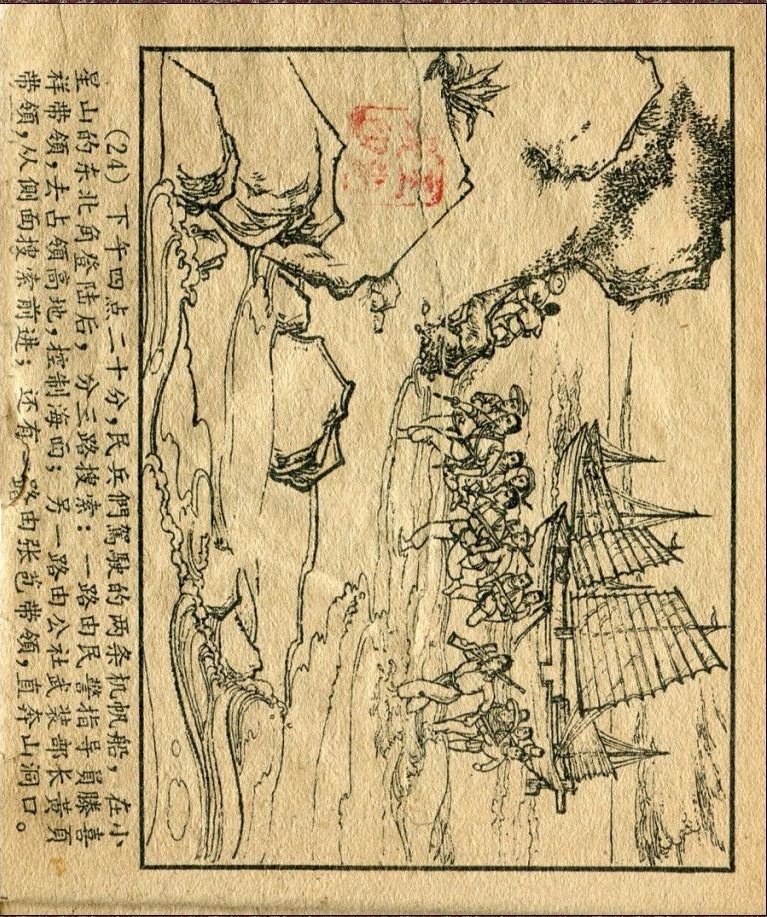 (24) 下午四点二十分，民兵們駕駛的两条机帆船，在小
星山的东北角登陆后，分三路搜索：一路由民警指导員滕喜
祥带領，去占領高地，控制海面；另一路由公社武装部长黄頁
带領，从側面搜索前进；还有一路由张苞带領，直奔山洞口。